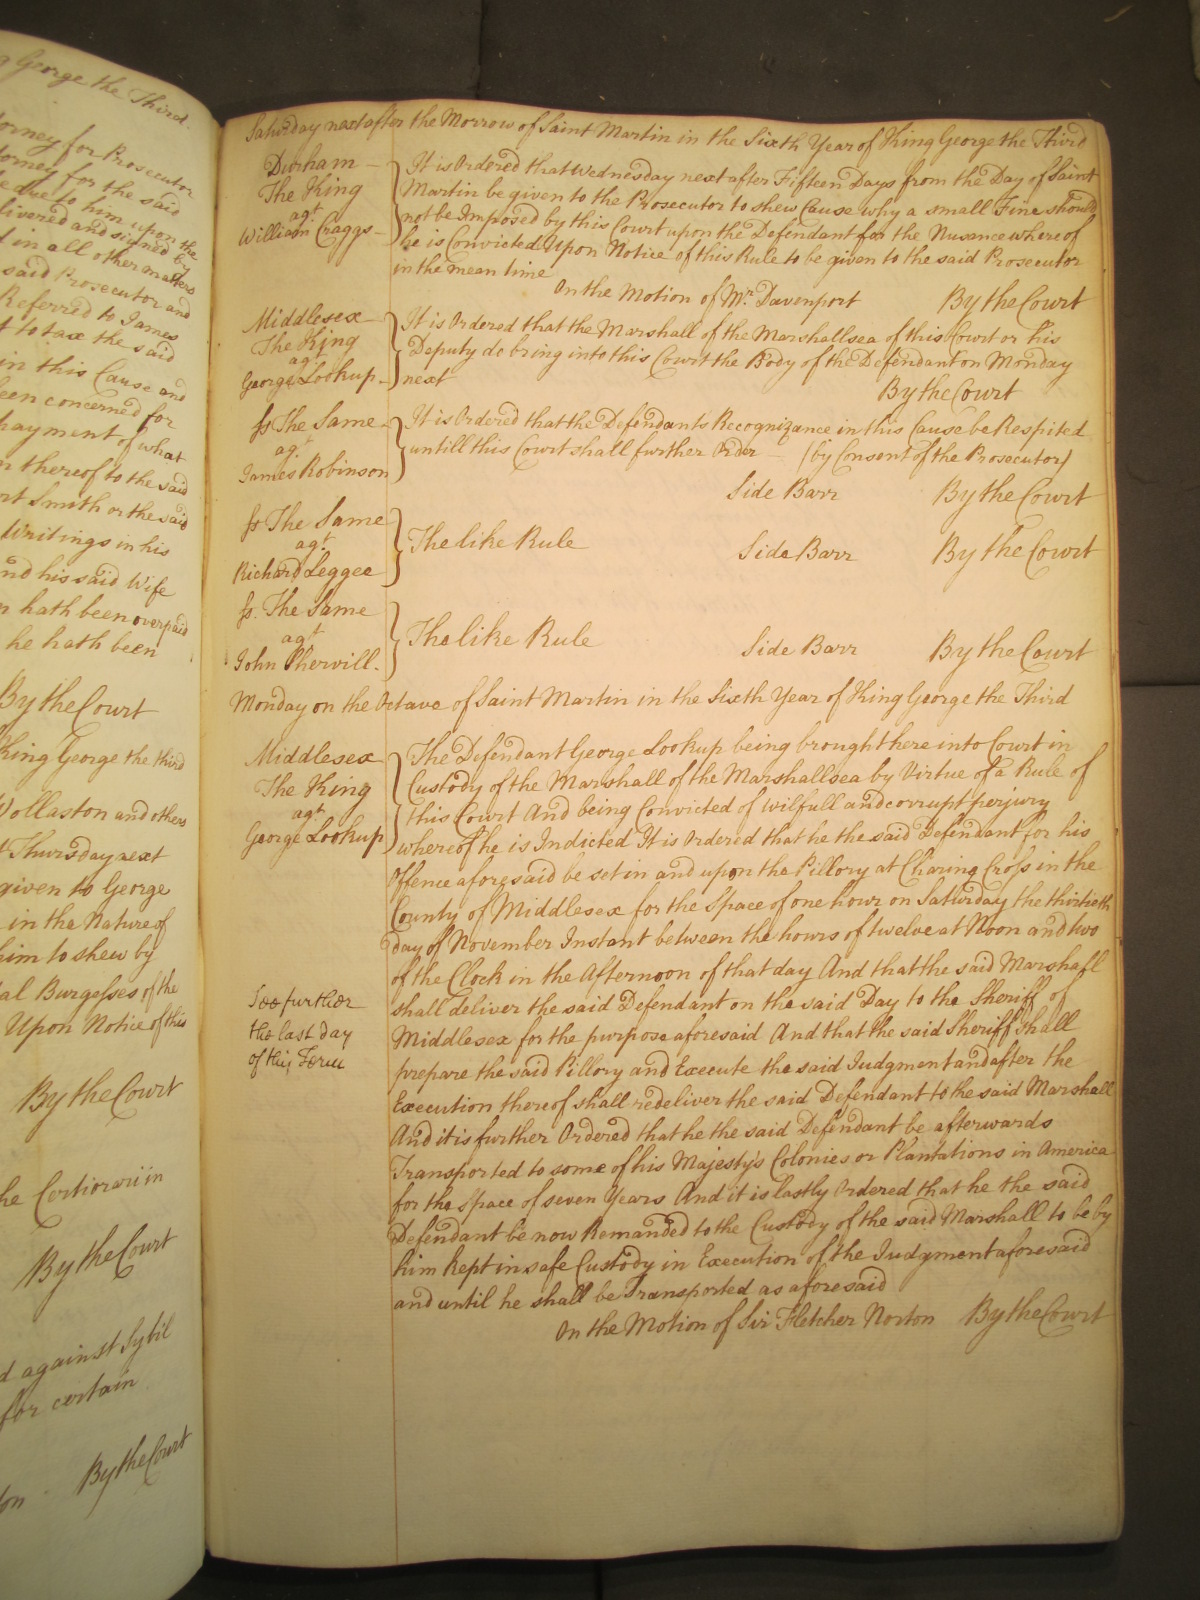 g George the Third.
torney for Prosecutor
torney for the said
be due to him upon the
livered and signed by
d in all other matters
said Prosecutor and
Referred to James
t to tax the said
in this Cause and
een concerned for
payment of what
n thereof to the said
rt Smith or the said
Writings in his
nd his said Wife
n hath been overpaid
he hath been
By the Court
King George the third
Wollaston and others
t Thursday next
given to George
in the Nature of
him to shew by
al Burgesses of the
Upon Notice of this
By the Court
he Certiorari in
By the Court
d against Sybil
for certain
ton By the Court
Saturday next after the Morrow of Saint Martin in the Sixth Year of King George the Third
Durham
The King
agt
William Craggs
It is Ordered that Wednesday next after Fifteen Days from the Day of Saint
Martin be given to the Prosecutor to shew Cause why a small Fine should
not be Imposed by this Court upon the Defendant for the Nusance whereof
he is Convicted Upon Notice of this Rule to be given to the said Prosecutor
in the mean time
On the Motion of Mr. Davenport By the Court
Middlesex
The King
agt
George Lookup
It is Ordered that the Marshall of the Marshallsea of this Court or his
Deputy do bring into this Court the Body of the Defendant on Monday
next By the Court
ss The Same
agt
James Robinson
It is Ordered that the Defendants Recognizance in this Cause be Respited
untill this Court shall further Order (by Consent of the Prosecutor)
Side Barr By the Court
ss The Same
agt
Richard Leggee
The like Rule Side Barr By the Court
ss. The Same
agt
John Shervill
The like Rule Side Barr By the Court
Monday on the Octave of Saint Martin in the Sixth Year of King George the Third
Middlesex
The King
agt
George Lookup
The Defendant George Lookup being brought here into Court in
Custody of the Marshall of the Marshallsea by Virtue of a Rule of
this Court And being Convicted of wilfull and corrupt perjury
whereof he is Indicted It is Ordered that he the said Defendant for his
Offence aforesaid be set in and upon the Pillory at Charing Cross in the
County of Middlesex for the Space of one hour on Saturday the thirtieth
day of November Instant between the hours of twelve at Noon and two
of the Clock in the Afternoon of that day And that the said Marshall
shall deliver the said Defendant on the said Day to the Sheriff of
Middlesex for the purpose aforesaid And that the said Sheriff shall
prepare the said Pillory and Execute the said Judgment and after the
Execution thereof shall redeliver the said Defendant to the said Marshall
And it is further Ordered that he the said Defendant be afterwards
Transported to some of his Majesty's Colonies or Plantations in America
for the space of seven Years And it is lastly Ordered that he the said
Defendant be now Remanded to the Custody of the said Marshall to be by
him kept in safe Custody in Execution of the Judgment aforesaid
and until he shall be Transported as aforesaid
On the Motion of Sir Fletcher Norton By the Court
See further
the last day
of this Term